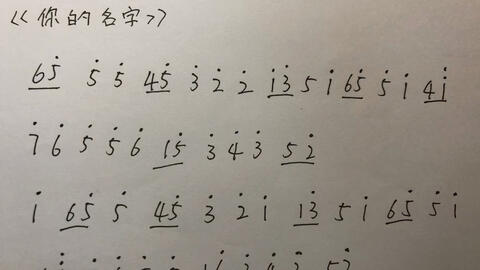 <<你的名字>>
65̇ 5̇ 5̇ 45̇ 3̇ 2̇ 2̇ i̇3̇ 5 i 65̇ 5̇ i 4i
7̇ 6̇ 5̇ 5̇ 6̇ 15̇ 3̇ 4̇ 3̇ 52̇
i 65̇ 5̇ 45̇ 3̇ 2̇ i 13̇ 5 i 65̇ 5̇ i